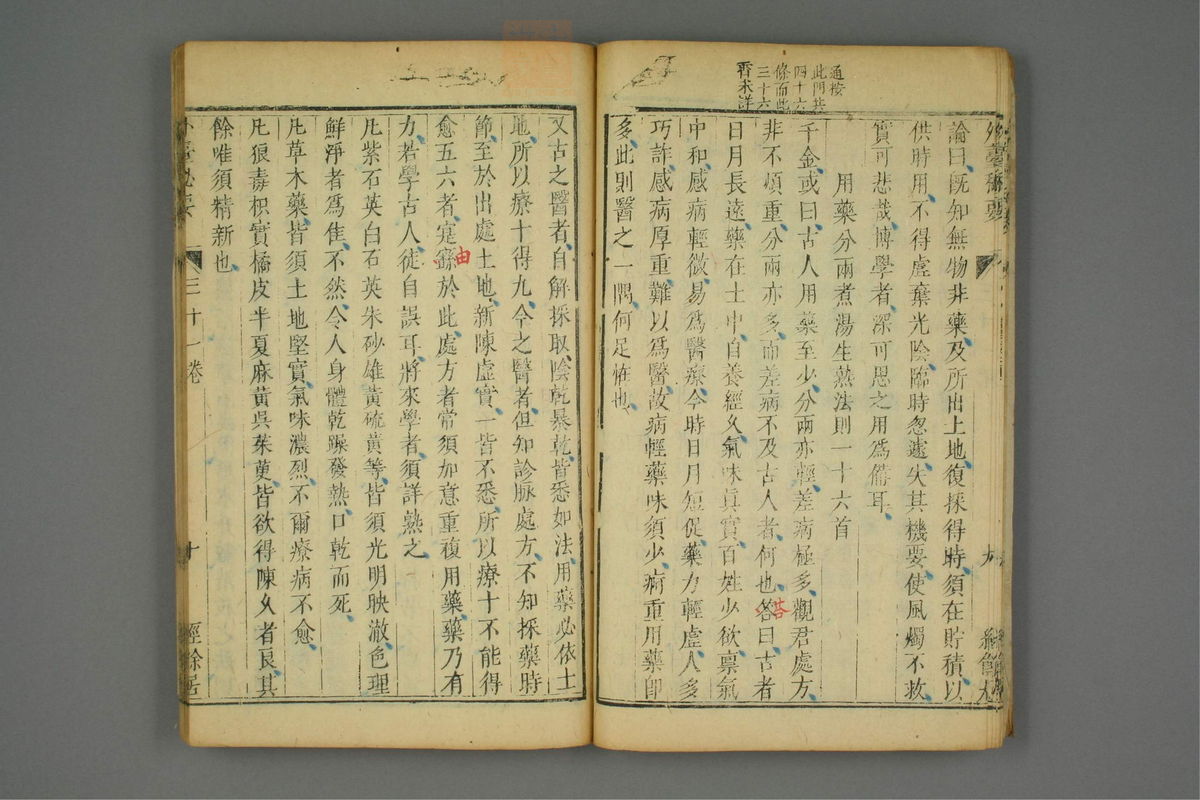 通按
此門共
四十六
條而此
三十六
論曰既知無物非藥及所出土地復採得時須在貯積以
供時用不得虛棄光陰臨時忽遽失其機要使風燭不救
實可悲哉博學者深可思之用為備耳
用藥分兩煮湯生熟法則一十六首
千金或曰古人用藥至少分兩亦輕差病極多觀君處方
非不煩重分兩亦多而差病不及古人者何也答曰古者
答
日月長遠藥在土中自養經久氣味真實百姓少欲稟氣
中和感病輕微易為醫療今時日月短促藥力輕虛人多
巧詐感病厚重難以為醫故病輕藥味須少病重用藥即
多此則醫之一隅何足恠也
又古之醫者自解採取陰乾暴乾皆悉如法用藥必依土
地所以療十得九今之醫者但知診脈處方不知採藥時
節至於出處土地新陳虛實一皆不悉所以療十不能得
由
愈五六者寔繇於此處方者常須加意重複用藥藥乃有
力若學古人徒自誤耳將來學者須詳熟之
凡紫石英白石英朱砂雄黃硫黃等皆須光明映澈色理
鮮淨者為佳不然令人身體乾躁發熱口乾而死
凡草木藥皆須土地堅實氣味濃烈不爾療病不愈
凡狼毒枳實橘皮半夏麻黃吳茱萸皆欲得陳久者良其
餘唯須精新也
三十一卷
十
經餘居